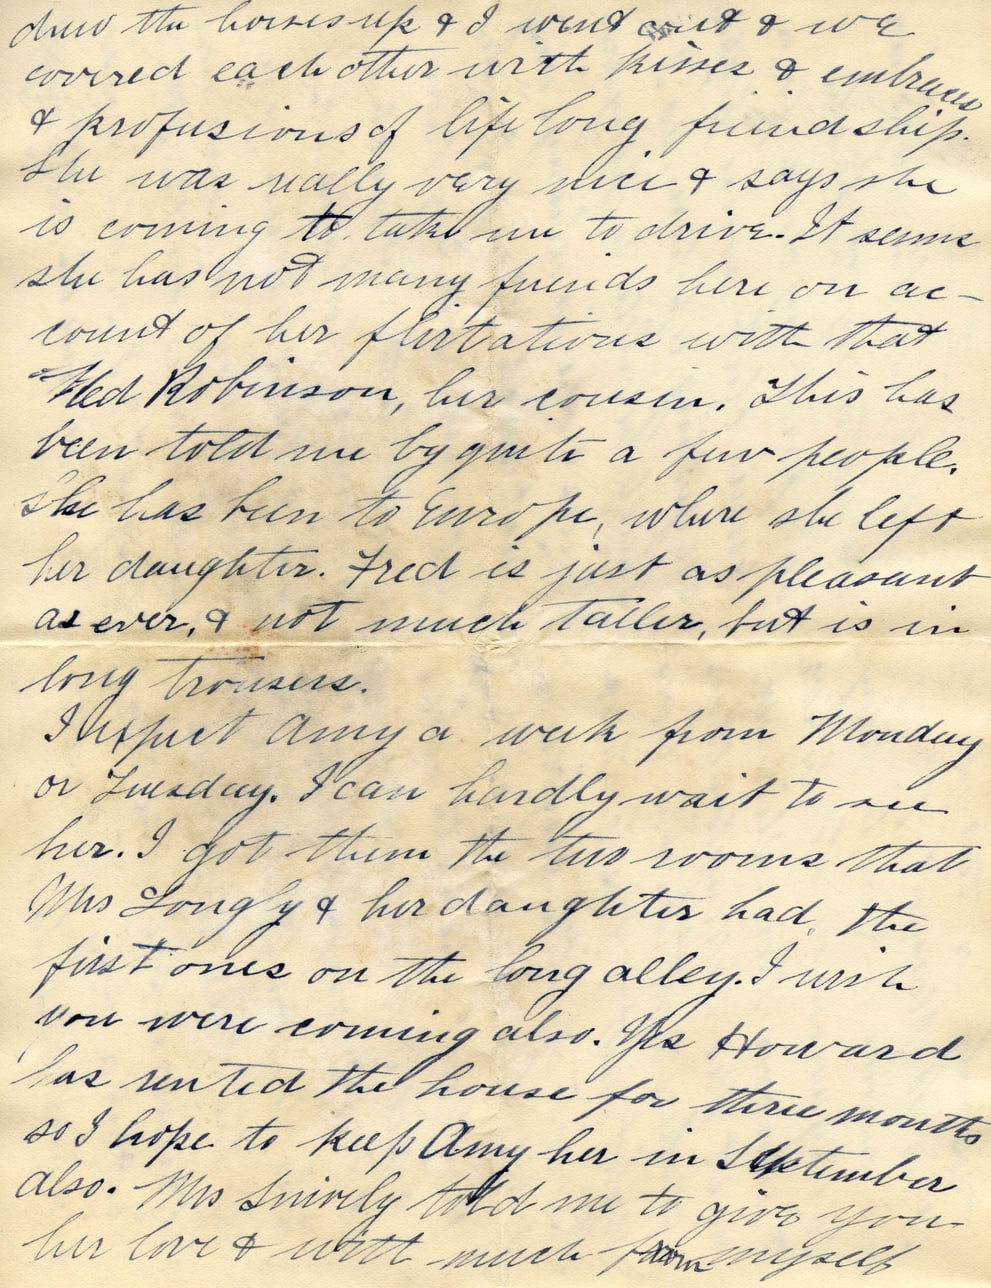 drew the horses up & I went out & we
covered each other with kisses & embraces
& profusions of life long friendship.
She was really very nice & says she
is coming to take me to drive. It seems
she has not many friends here on ac-
count of her flirtations with that
Robinson, her cousin. This has
been told me by quite a few people.
She has been to Europe, where she left
her daughter. Fred is just as pleasant
as ever, & not much taller, but is in
long trousers.
I expect Amy a week from Monday
or Tuesday. I can hardly wait to see
her. I got them the two rooms that
Mrs Longly & her daughter had, the
first ones on the long alley. I wish
you were coming also. Yes Howard
has rented the house for three months
so I hope to keep Amy her in September
also. Mrs Snively told me to give you
her love & with much from myself